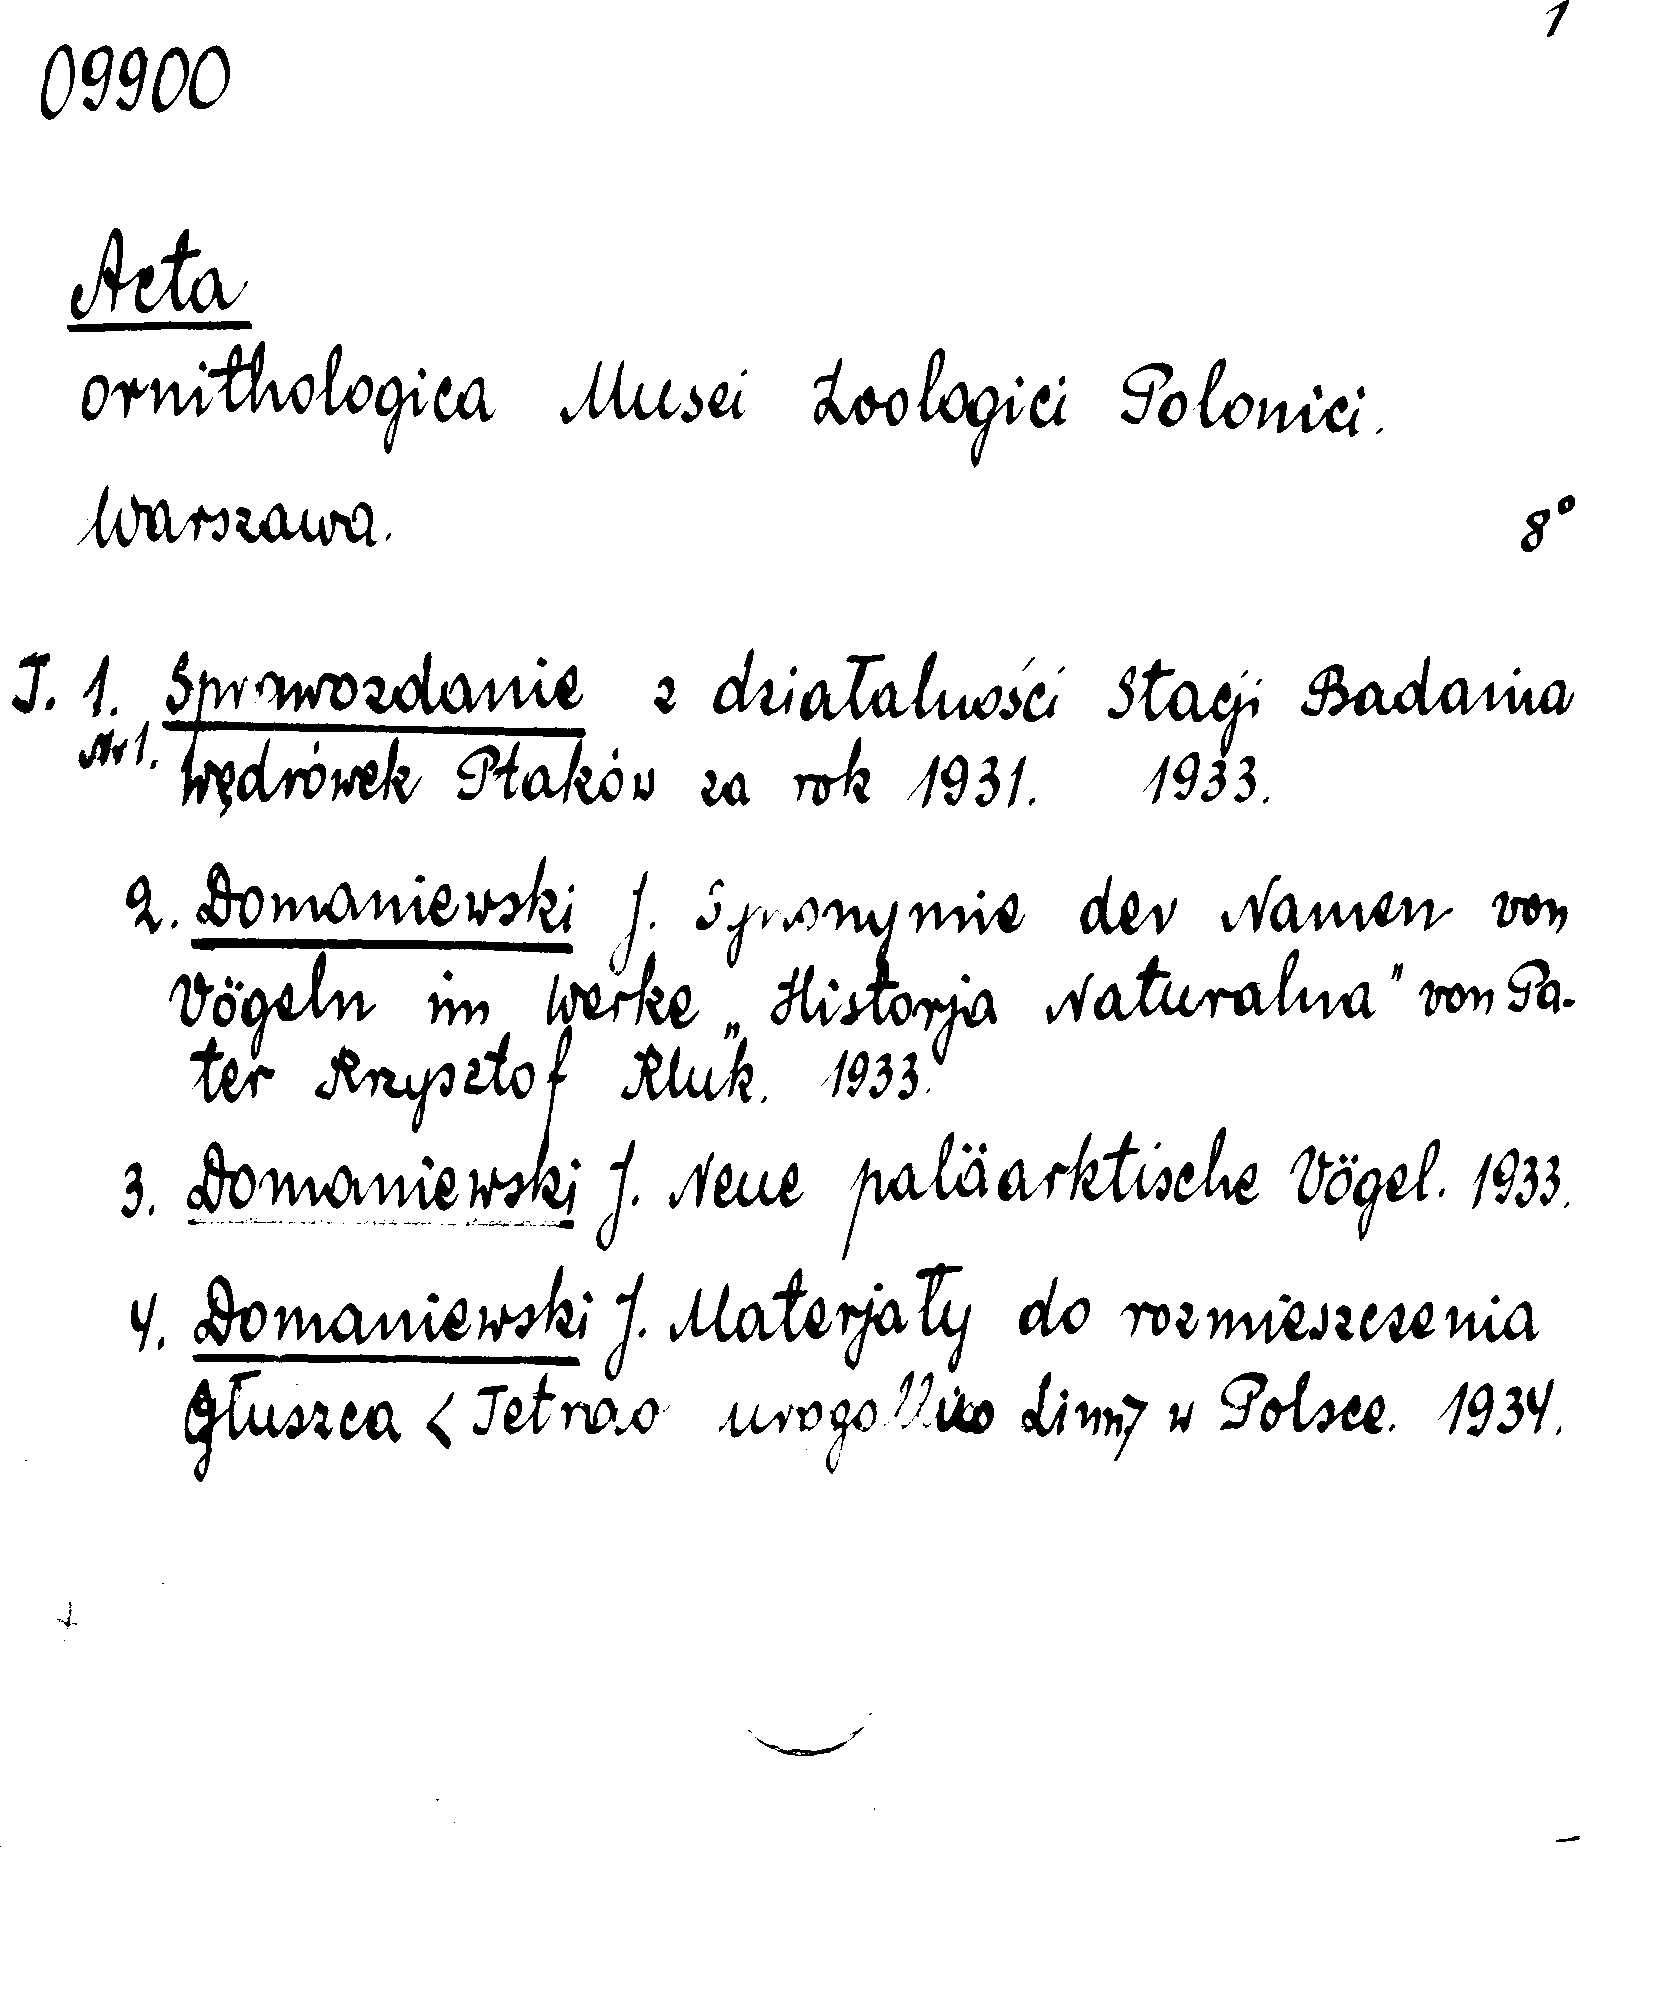 1
09900
Acta
ornithologica Musei Zoologici Polonici.
Warszawa. 8°
T. 1. Sprawozdanie z działalności Stacji Badania
Nr 1. Wędrówek Ptaków za rok 1931. 1933.
2. Domaniewski J. Synonymie der Namen von
Vögeln im Werke „Historja Naturalna" von Pa-
ter Krzysztof Kluk. 1933.
3. Domaniewski J. Neue paläarktische Vögel. 1933.
4. Domaniewski J. Materjały do rozmieszczenia
Głuszca < Tetrao Linn7 w Polsce. 1934.